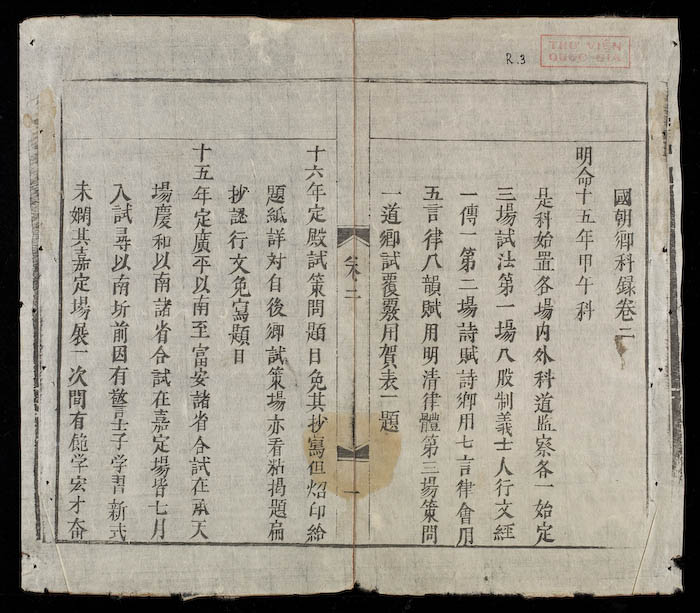 R.3
THƯ VIỆN
QUỐC GIA
國朝鄉科録卷二
明命十五年甲午科
是科始置各場内外科道監察各一始定
三場試法第一場八股制義士人行文經
一傳一第二場詩賦詩鄉用七言律會用
五言律八韻賦用明清律體第三場策問
一道鄉試覆覈用賀表一題
卷二
一
十六年定殿試策問題目免其抄寫但炤印給
題紙詳対自後鄉試策場亦看粘揭題扁
抄謎行文免寫題目
十五年定廣平以南至富安諸省合試在承天
場慶和以南諸省合試在嘉定場皆七月
入試尋以南圻前因有警士子学習新式
未嫻其嘉定場展一次間有飽学宏才奋